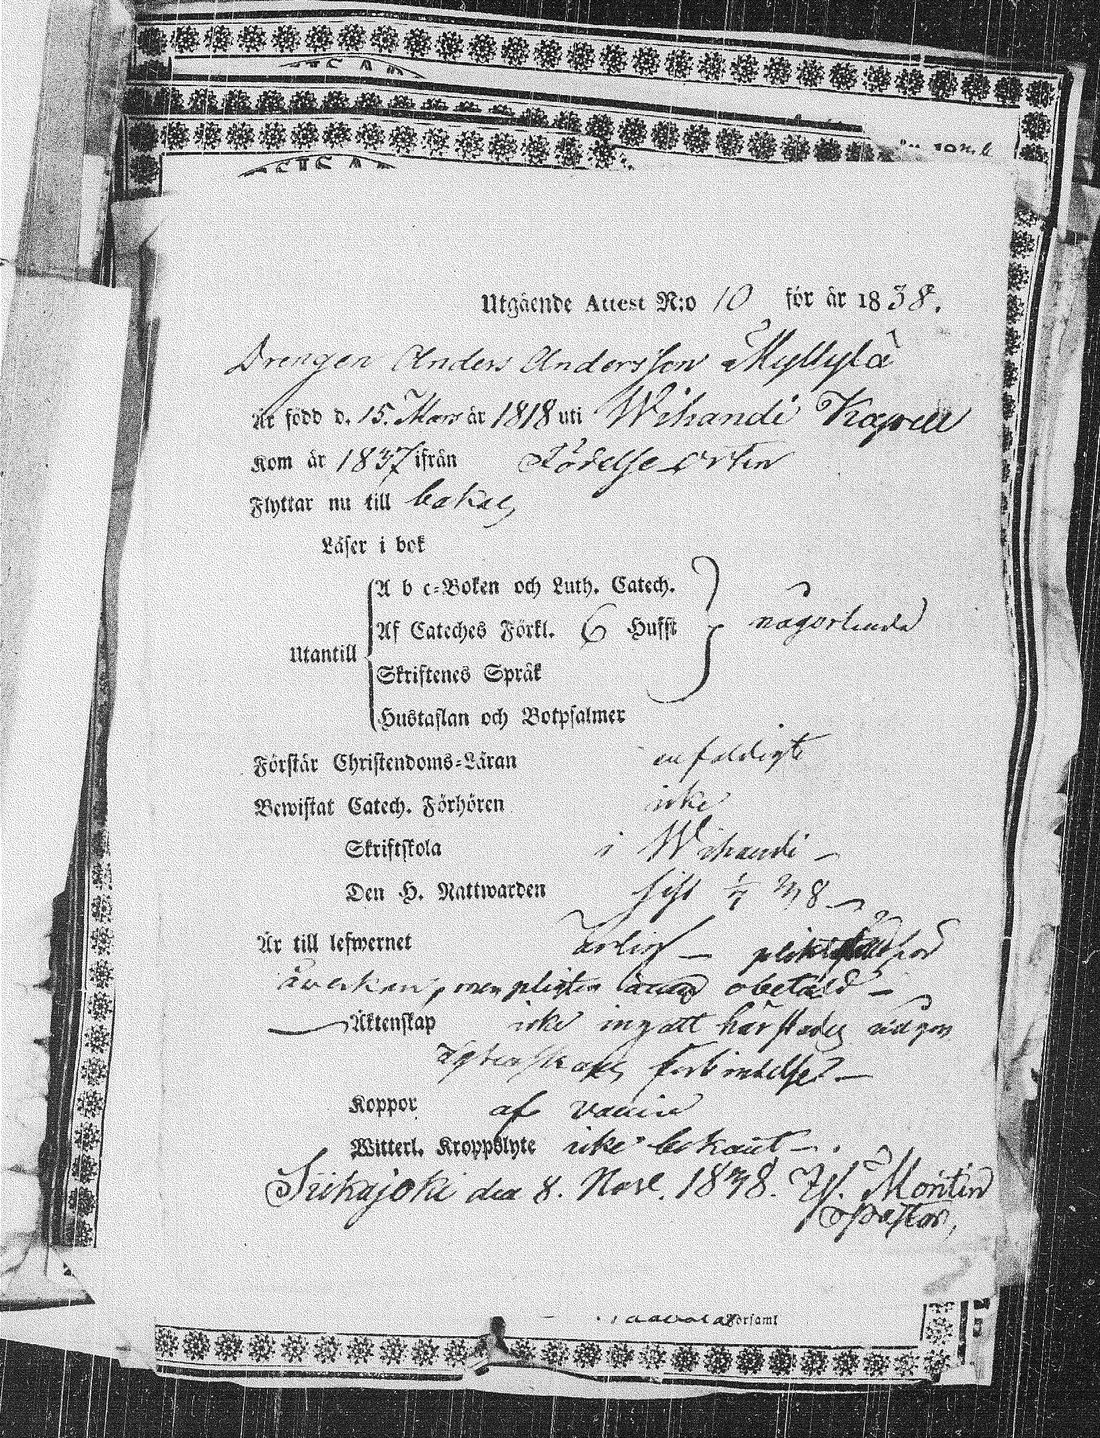 Utgående Attest N:o 10 för år 1838.
Drengen Anders Andersson Myllylä
Är född d. 15. Mars år 1818 uti Wihandi Kapell
Kom år 1837 ifrån Födelse orten
Flyttar nu till bakas
Läser i bok
A b c-Boken och Luth. Catech.
Af Cateches Förkl. 6 Hufst någorlunda
Utantill
Skriftenes Språk
Hustaflan och Botpsalmer
Förstår Christendoms-Läran enfaldigt
Bewistat Catech. Förhören icke
Skriftskola i Wihandi –
Den H. Nattwarden sist 1/7 38 –
Är till lefwernet ärlig – för
åverkan, men pligten ännu obetald –
Äktenskap icke ingått härstädes någon
ägtenskaps förbindelse. –
Koppor af vaccin
Witterl. Kroppslyte icke bekant – .
Siikajoki den 8. Nov. 1838. W. Montin
Pastor,
Församl